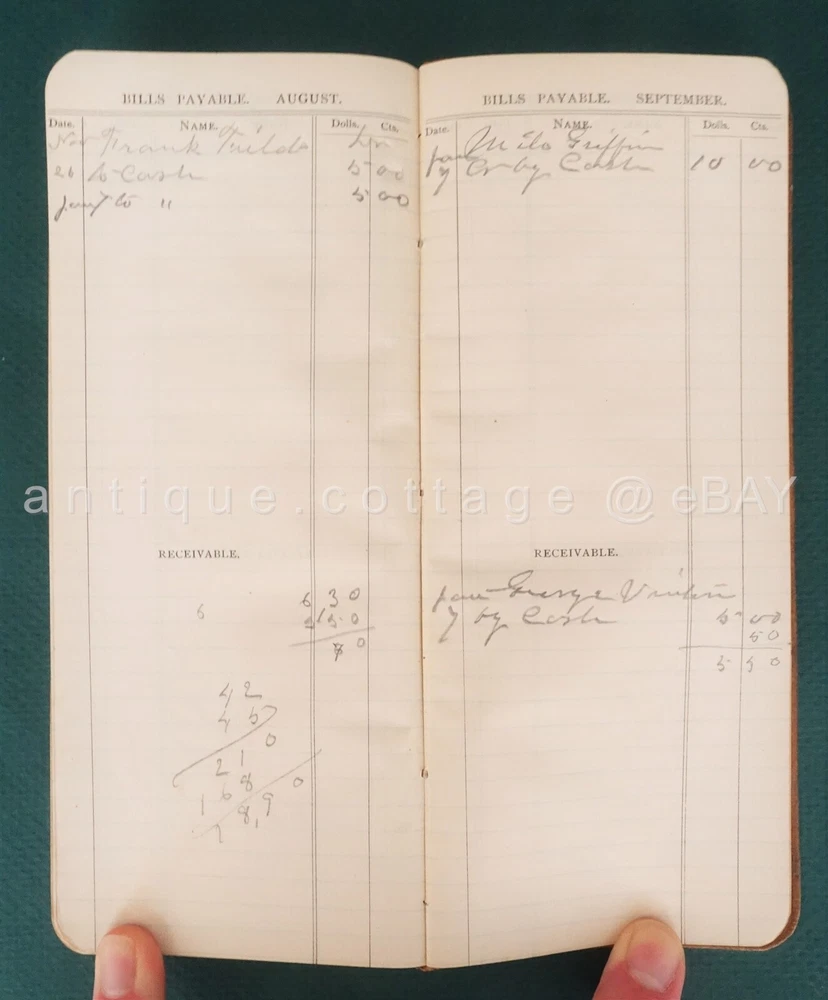 BILLS PAYABLE. AUGUST.
Date. NAME. Dolls. Cts.
Nov Frank Dr
26 to Cash 5 00
Jan 7 to " 5 00
RECEIVABLE.
6 3 0
6
0
42
45
210
168 0
1 8,9 0
BILLS PAYABLE. SEPTEMBER.
Date. NAME. Dolls. Cts.
Jan Milo Griffin
7 Cr by Cash 10 00
RECEIVABLE.
Jan George
7 by Cash 5 00
50
5 50
antique.cottage @ eBAY